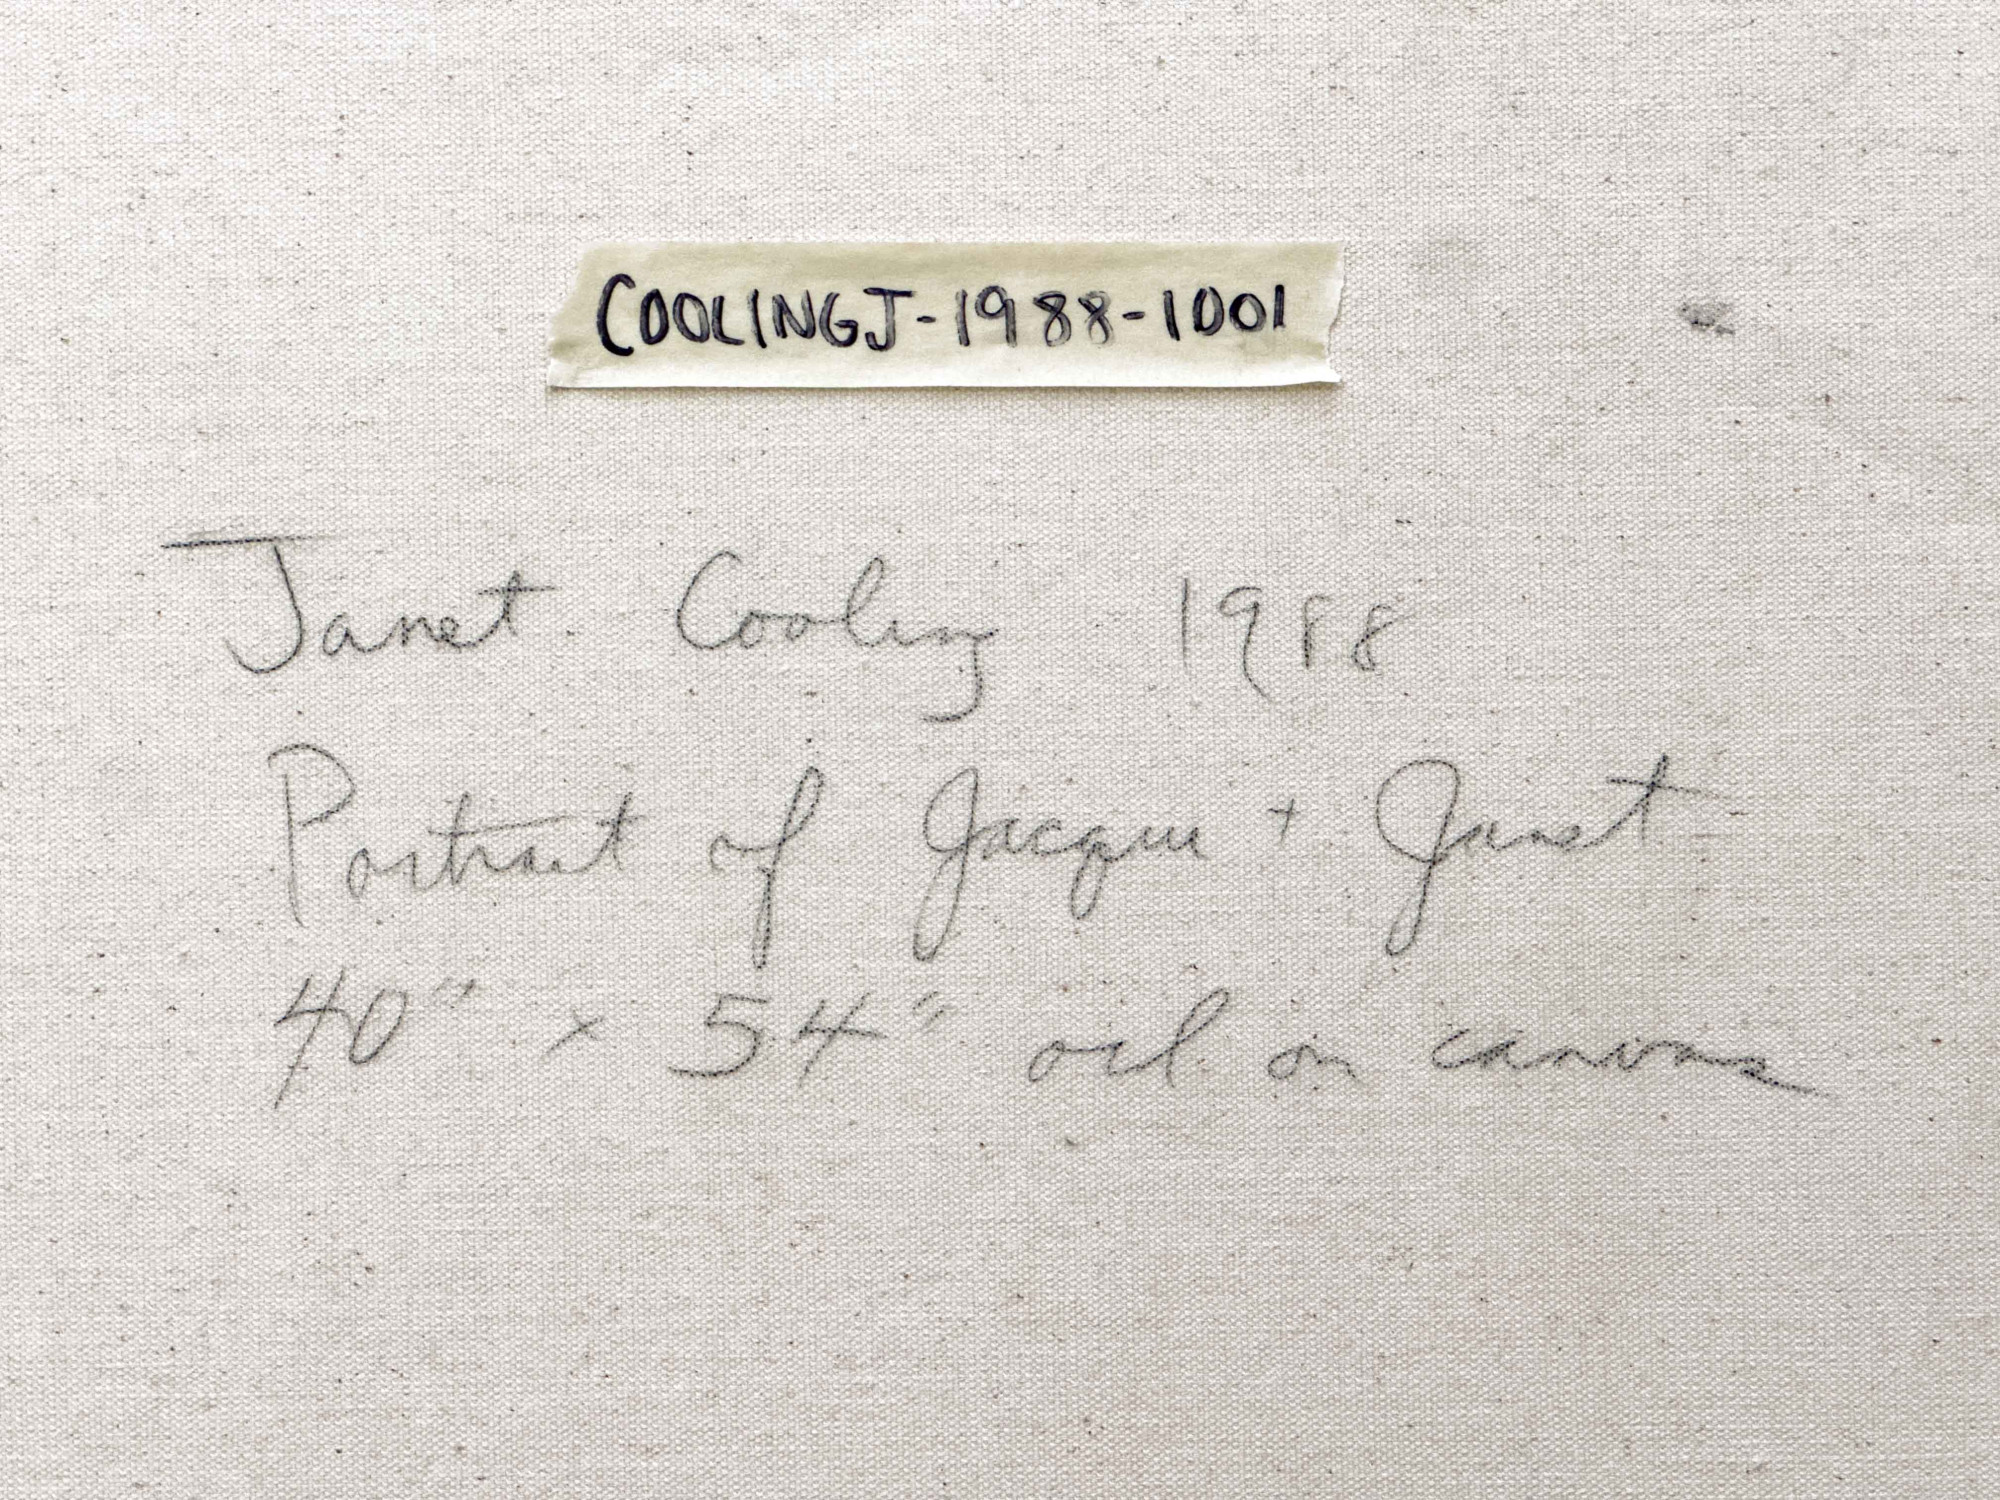 COOLINGJ-1988-1001
Janet Cooling 1988
Portrait of Jacqui + Janet
40" x 54" oil on canvas